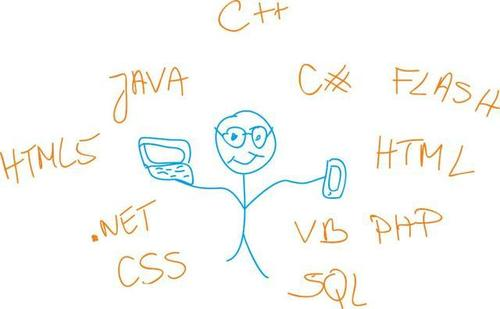 C++
JAVA
C# FLASH
HTML5
HTML
.NET
VB PHP
CSS
SQL